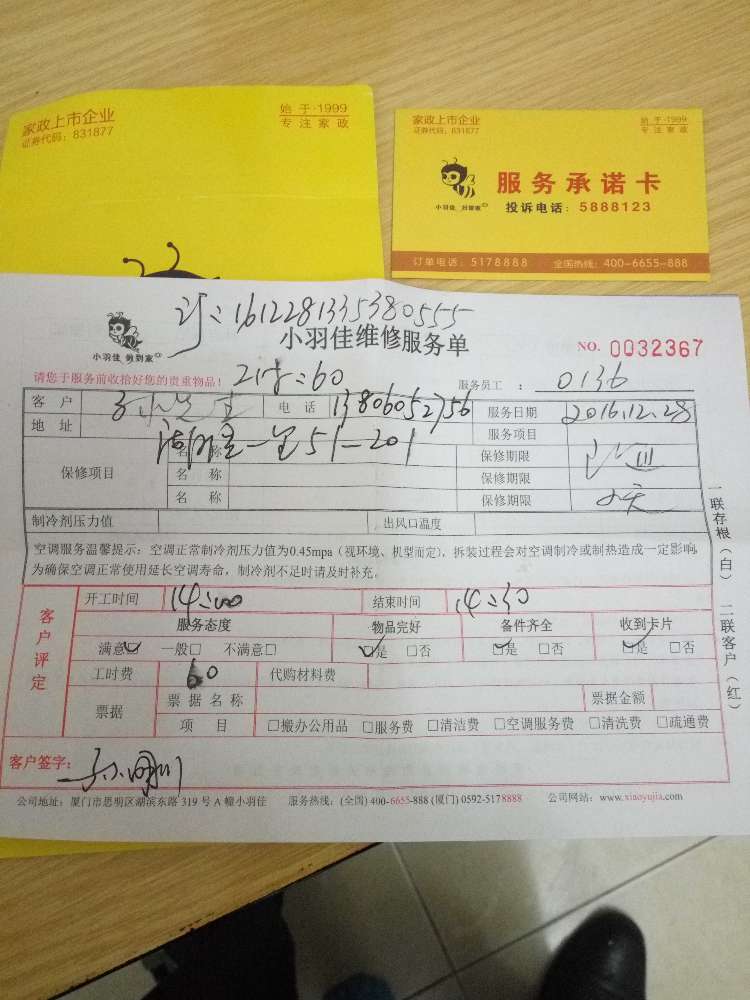 家政上市企业
证券代码：831877
始于·1999
专注家政
家政上市企业
证券代码：831877
始于·1999
专注家政
服务承诺卡
小羽佳 到家
投诉电话：5888123
订单电话：5178888 全国热线：400-6655-888
1612281335380555
小羽佳 到家
小羽佳维修服务单
NO. 0032367
请您于服务前收拾好您的贵重物品！
:60
服务员工： 0136
客户 电话 13806052756 服务日期 2016.12.28
地址 51-201 服务项目
保修项目 名称 保修期限
名称 保修期限
名称 保修期限
制冷剂压力值 出风口温度
空调服务温馨提示：空调正常制冷剂压力值为0.45mpa（视环境、机型而定），拆装过程会对空调制冷或制热造成一定影响，
为确保空调正常使用延长空调寿命，制冷剂不足时请及时补充。
一联存根（白） 二联客户（红）
客户评定
开工时间 14:00 结束时间 14:30
服务态度 物品完好 备件齐全 收到卡片
满意☑ 一般□ 不满意□ ☑是 □否 ☑是 □否 ☑是 □否
工时费 60 代购材料费
票据 票据名称 票据金额
项目 □搬办公用品 □服务费 □清洁费 □空调服务费 □清洗费 □疏通费
客户签字：
公司地址：厦门市思明区湖滨东路319号A幢小羽佳 服务热线：(全国) 400-6655-888 (厦门) 0592-5178888 公司网站：www.xiaoyujia.com